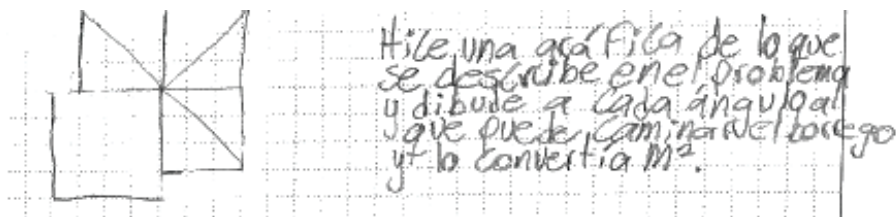 Hice una gráfica de lo que
se describe en el problema
y dibude a cada ángulo al
que puede caminar el borrego
y lo convertía m².